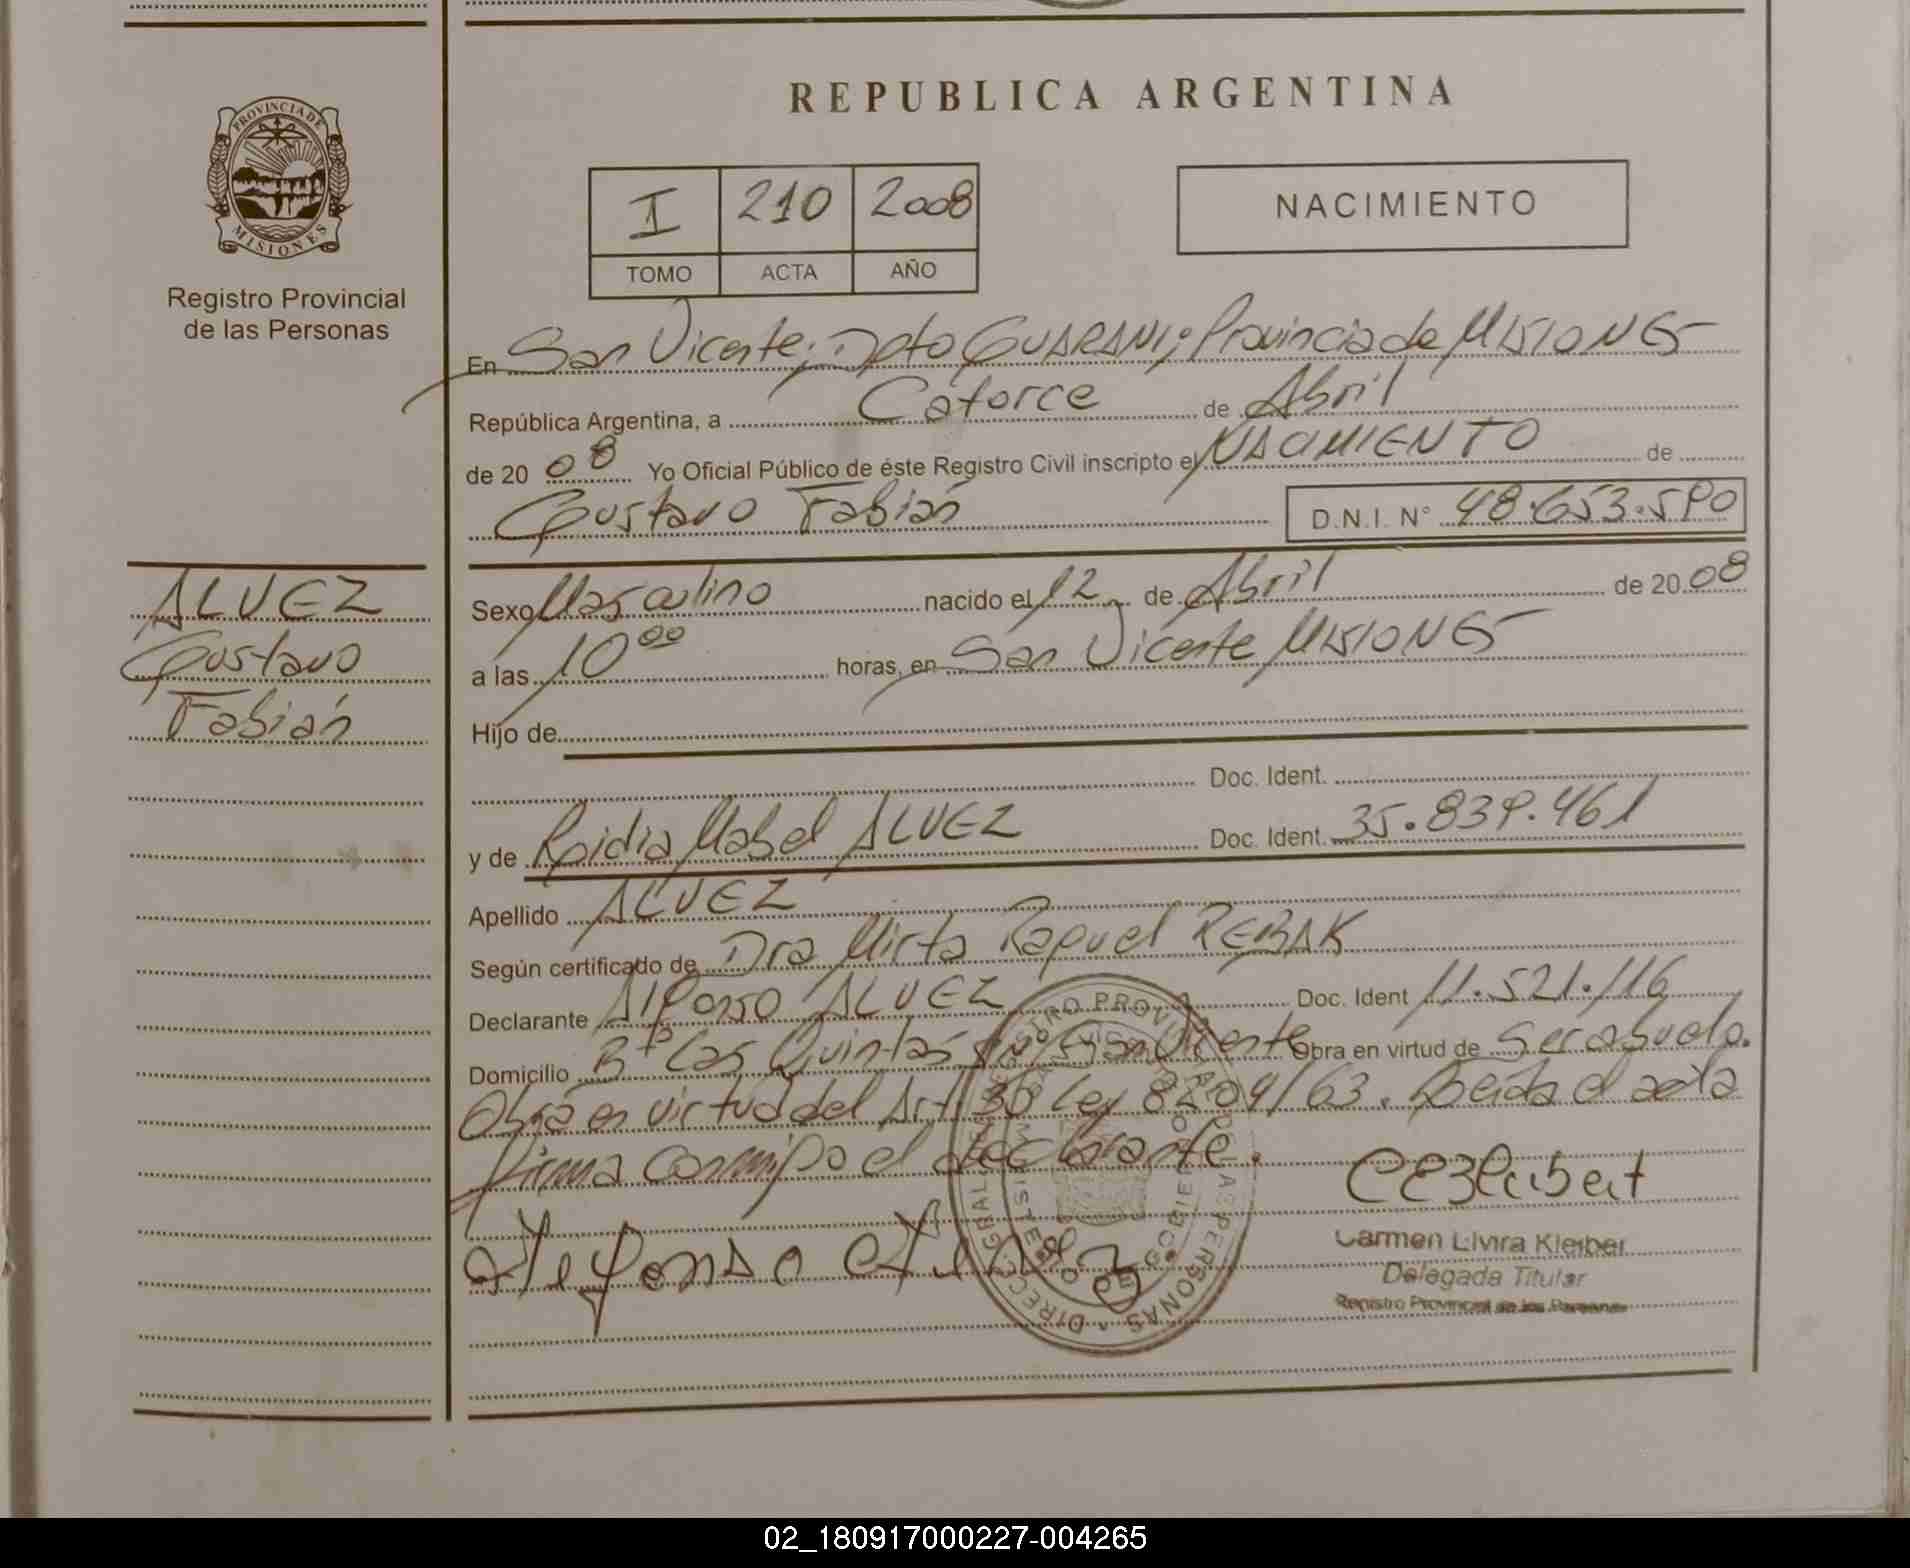 REPUBLICA ARGENTINA
PROVINCIA DE MISIONES
Registro Provincial
de las Personas
I 210 2008
TOMO ACTA AÑO
NACIMIENTO
En San Vicente, Dpto GUARANI; Provincia de MISIONES
República Argentina, a Catorce de Abril
de 2008 Yo Oficial Público de éste Registro Civil inscripto el NACIMIENTO de
Gustavo Fabián D.N.I. N° 48.653.590
ALVEZ
Gustavo
Fabián
Sexo Masculino nacido el 12 de Abril de 2008
a las 10⁰⁰ horas, en San Vicente MISIONES
Hijo de
Doc. Ident.
y de Mabel ALVEZ Doc. Ident. 35.839.461
Apellido ALVEZ
Según certificado de Dra Mirta Raquel REBAK
Declarante ALVEZ Doc. Ident 11.521.116
Domicilio B° Las Quintas S/N° San Vicente Obra en virtud de Ser abuelo.
Obra en virtud del Art. 30 Ley 8204/63. Leída el acta
firma conmigo el declarante.
Carmen Elvira Kleiber
Delegada Titular
Registro Provincial de las Personas
02_180917000227-004265